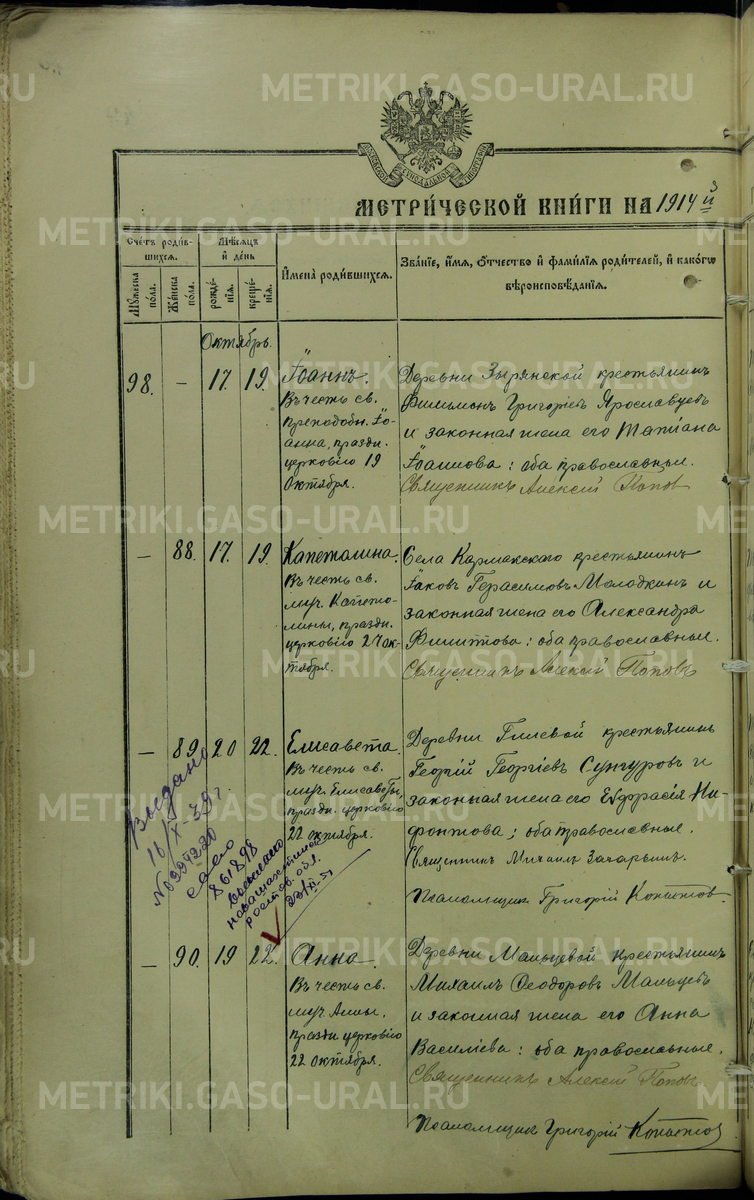 METRIKI.GASO-URAL.RU
МЕТРИ́ЧЕСКОЙ КНИ́ГИ НА 1914 й
Счетъ роди́вшихся.
Мѣсяцъ и день
Имена роди́вшихся.
Зва́нїе, и́мя, о́тчество и фами́лїя роди́телей, и како́гѡ вѣроисповѣ́данїя.
Му́жеска по́ла.
Же́нска по́ла.
рожде́нїя.
креще́нїя.
Октябрь.
98. – 17. 19. Іоаннъ.
Въ честь св.
преподобн. Іо-
анна, праздн.
церковію 19
Октября.
Деревни Зырянской крестьянинъ
Филимонъ Григоріевъ Ярославцевъ
и законная жена его Татіана
Іоаннова: оба православные.
Священникъ Алексій Поповъ
– 88. 17. 19. Капетолина.
Въ честь св.
муч. Капето-
лины, праздн.
церковію 27 ок-
тября.
Села Кармакскаго крестьянинъ
Іаковъ Герасимовъ Молодкинъ и
законная жена его Александра
Филиппова: оба православные.
Священникъ Алексій Поповъ
– 89. 20 22. Елисавета.
Въ честь св.
муч. Елисаветы,
праздн. церковію
22 октября.
Деревни Гилевой крестьянинъ
Георгій Георгіевъ Сунгуровъ и
законная жена его Евфрасія Ни-
фонтова; оба православные.
Священникъ Михаилъ Захарьинъ.
Псаломщикъ Григорій Копытовъ.
Выдано
16/X-39 г
– 90. 19 22. Анна.
Въ честь св.
муч. Анны,
праздн церковію
22 октября.
Деревни Мальцевой крестьянинъ
Михаилъ Ѳеодоровъ Мальцевъ
и законная жена его Анна
Василіева: оба православные.
Священникъ Алексій Поповъ
Псаломщикъ Григорій Копытовъ